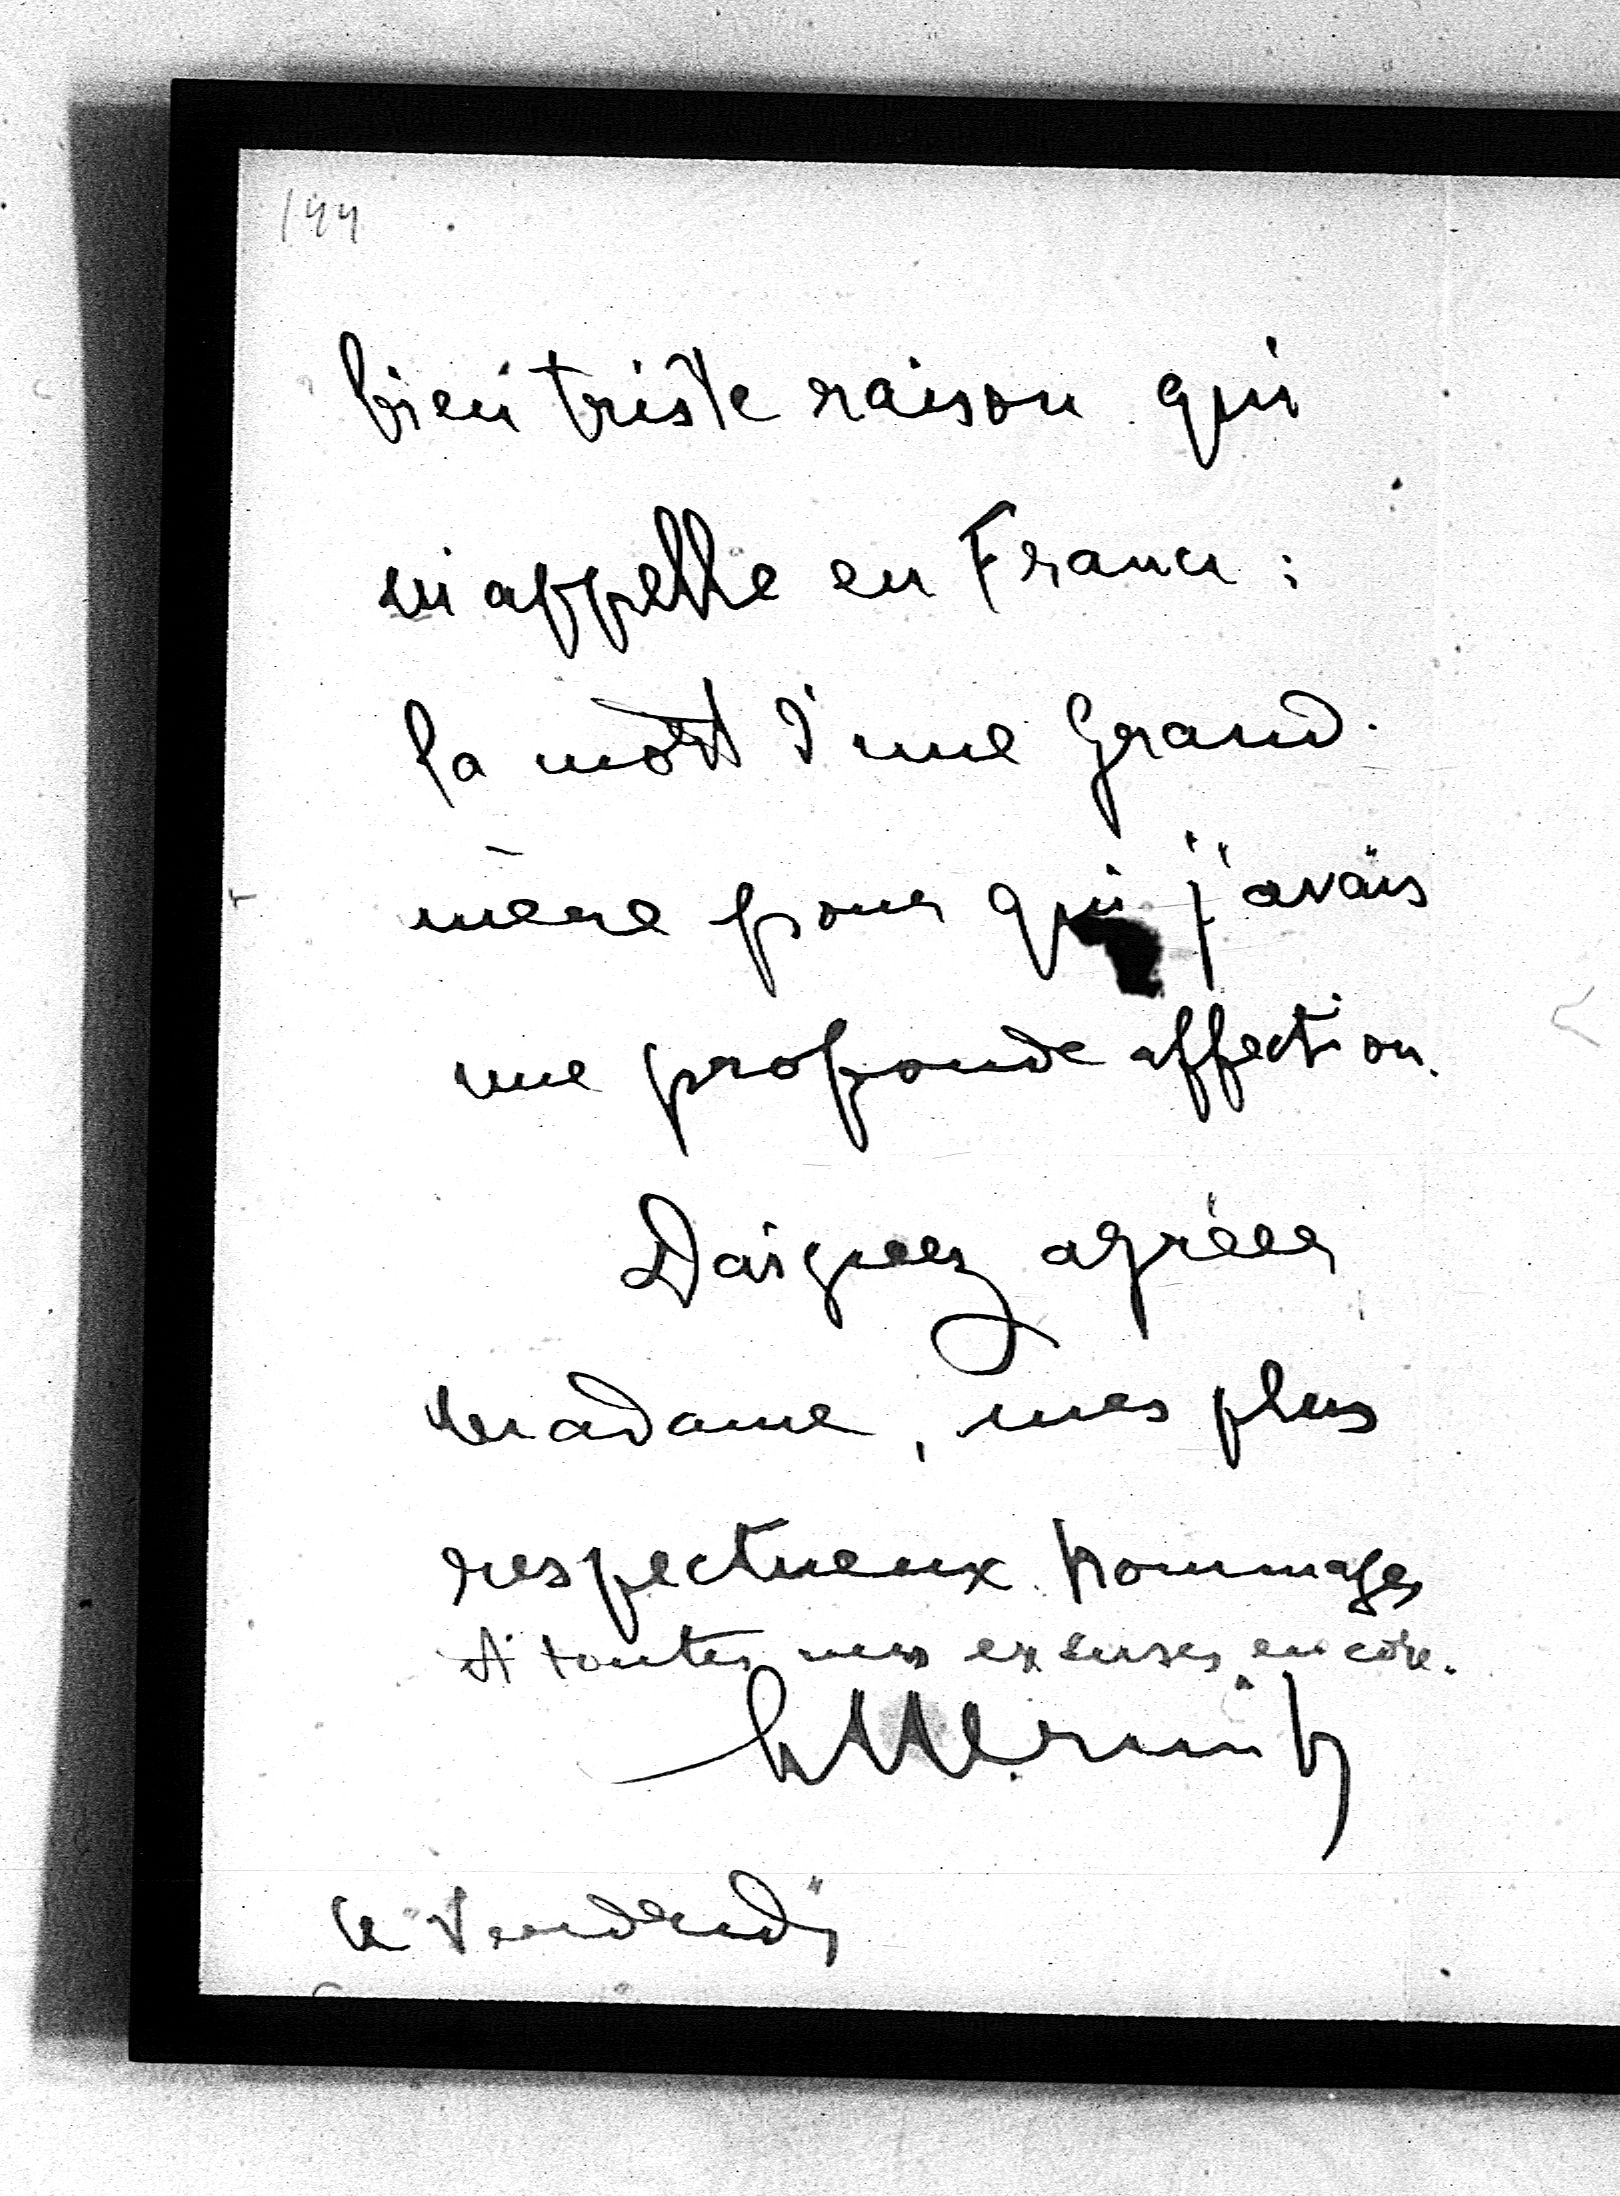 144
bien triste raison qui
m'appelle en France :
la mort d'une Grand-
mère pour qui j'avais
une profonde affection.
Daignez agréer
Madame, mes plus
respectueux hommages
et toutes mes excuses encore.
le Vendredi